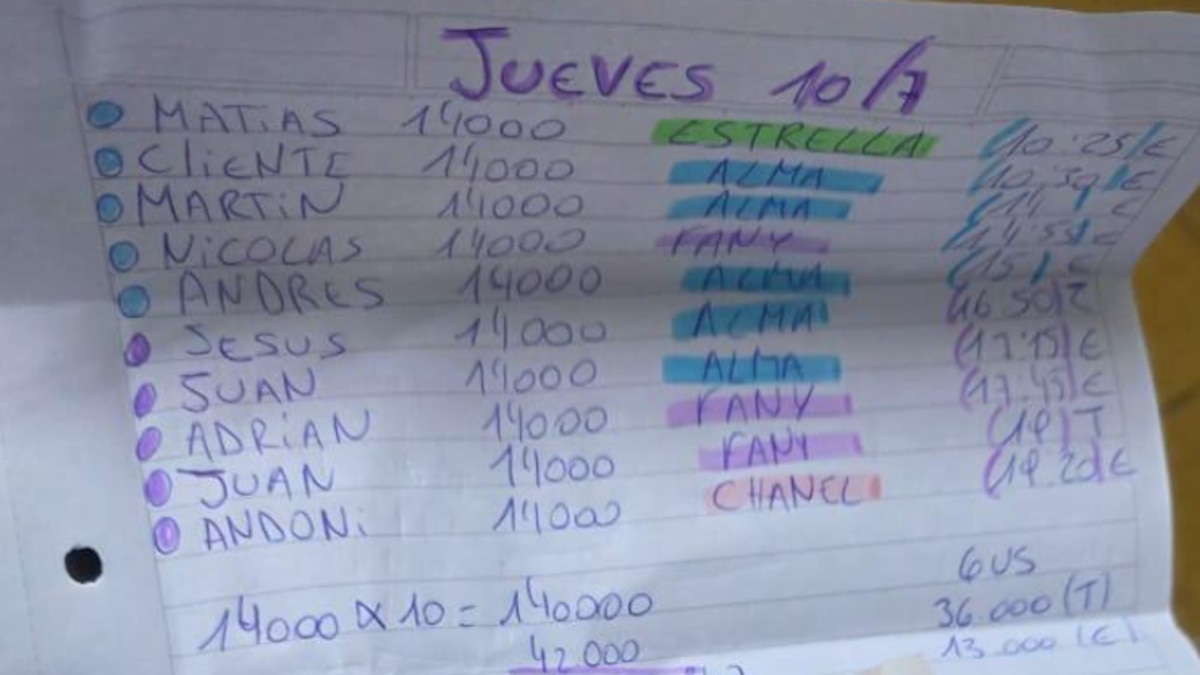 JUEVES 10/7
MATiAS 14000 ESTRELLA (10:25)€
CLIENTE 14000 ALMA
MARTiN 14000 ALMA (14) €
NiCOLAS 14000 FANY €
ANDRES 14000 ALMA (15) €
JESUS 14000 ALMA (16:50)T
JUAN 14000 ALMA (17:15)€
ADRiAN 14000 FANY (17:45)€
JUAN 14000 FANY T
ANDONi 14000 CHANEL €
14000 X 10 = 140000
42.000
6US
36.000 (T)
13.000 (€)